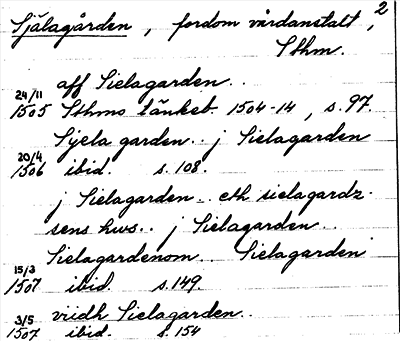 Själagården, fordom vårdanstalt, 2
Sthm.
aff Sielagarden..
24/11
1505 Sthms tänkeb. 1504-14, s. 97.
Sjela garden.. j Sielagarden
20/4
1506 ibid. s. 108.
j Sielagarden.. eth sielagardz-
sens hws.. j Sielagarden..
Sielagardenom.. Sielagarden
15/3
1507 ibid. s. 149.
vridh Sielagarden..
3/5
1507 ibid. s. 154